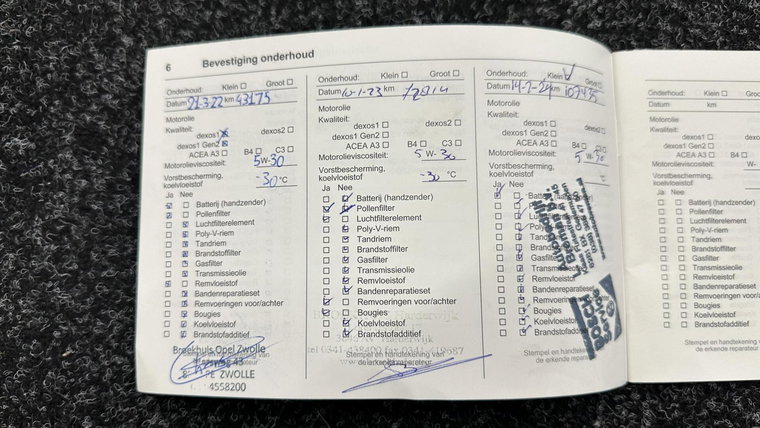 6 Bevestiging onderhoud
Onderhoud: Klein Groot
Datum 21-3-22 km 43175
Motorolie
Kwaliteit:
dexos1 dexos2
dexos1 Gen2
ACEA A3 B4 C3
Motorolieviscositeit:
5 W-30
Vorstbescherming,
koelvloeistof
-30 °C
Ja Nee
Batterij (handzender)
Pollenfilter
Luchtfilterelement
Poly-V-riem
Tandriem
Brandstoffilter
Gasfilter
Transmissieolie
Remvloeistof
Bandenreparatieset
Remvoeringen voor/achter
Bougies
Koelvloeistof
Brandstofadditief
Broekhuis Opel Zwolle
ZWOLLE
4558200
Onderhoud: Klein Groot
Datum 10-1-23 km
Motorolie
Kwaliteit:
dexos1 dexos2
dexos1 Gen2
ACEA A3 B4 C3
Motorolieviscositeit:
5 W-30
Vorstbescherming,
koelvloeistof
-30 °C
Ja Nee
Batterij (handzender)
Pollenfilter
Luchtfilterelement
Poly-V-riem
Tandriem
Brandstoffilter
Gasfilter
Transmissieolie
Remvloeistof
Bandenreparatieset
Remvoeringen voor/achter
Bougies
Koelvloeistof
Brandstofadditief
Harderwijk
Stempel en handtekening van
de erkende reparateur
Onderhoud: Klein Groot
Datum km 107455
Motorolie
Kwaliteit:
dexos1 dexos2
dexos1 Gen2
ACEA A3 B4 C3
Motorolieviscositeit:
5 W-30
Vorstbescherming,
koelvloeistof
Ja Nee
Batterij (handzender)
Pollenfilter
Luchtfilterelement
Poly-V-riem
Tandriem
Brandstoffilter
Gasfilter
Transmissieolie
Remvloeistof
Bandenreparatieset
Remvoeringen
Bougies
Koelvloeistof
Brandstofadditief
Stempel en handtekening van
de erkende reparateur
Onderhoud: Klein
Datum km
Motorolie
Kwaliteit:
dexos1
dexos1 Gen2
ACEA A3 B4
Motorolieviscositeit:
W-
Vorstbescherming,
koelvloeistof
Ja Nee
Batterij (handzender)
Pollenfilter
Luchtfilterelement
Poly-V-riem
Tandriem
Brandstoffilter
Gasfilter
Transmissieolie
Remvloeistof
Bandenreparatieset
Remvoeringen
Bougies
Koelvloeistof
Brandstofadditief